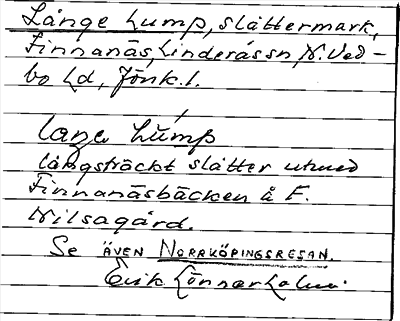 Långe Lump, slåttermark,
Finnanäs, Linderås sn, N. Ved-
bo hd, Jönk. l.
laŋa lump
långsträckt slåtter utmed
Finnanäsbäcken å F.
Nilsagård.
Se ÄVEN NORRKÖPINGSRESAN.
Erik Lönnerholm.